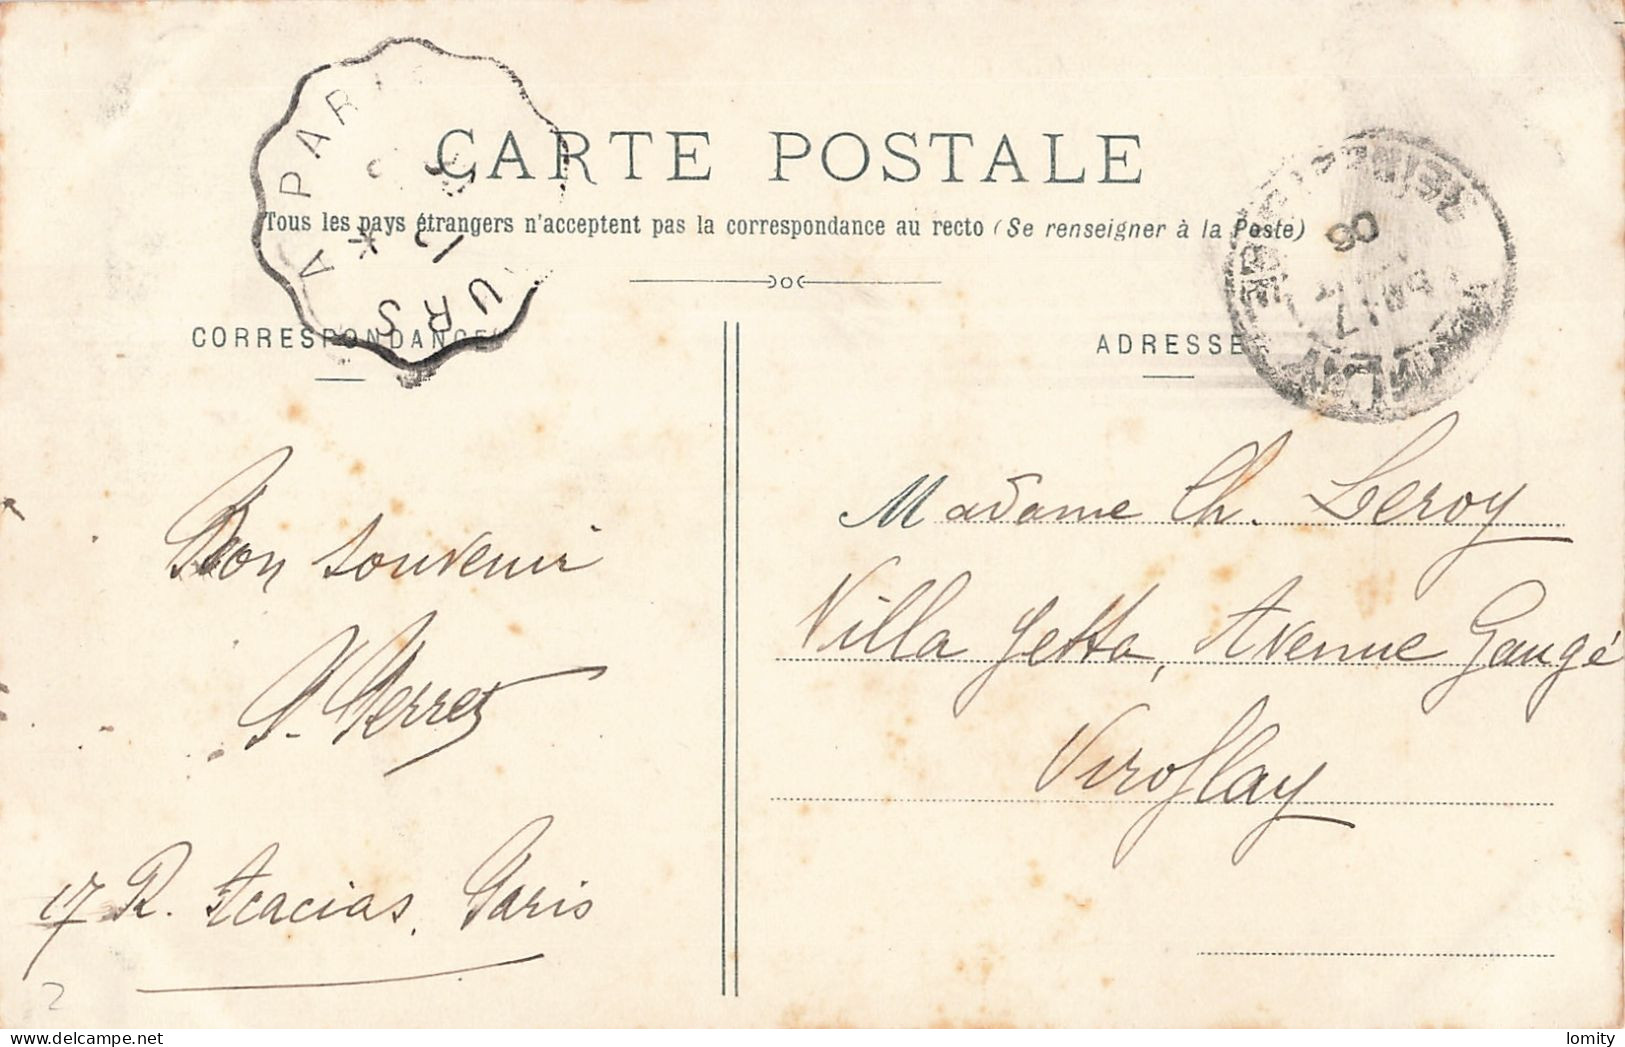 CARTE POSTALE
Tous les pays étrangers n'acceptent pas la correspondance au recto (Se renseigner à la Poste)
CORRESPONDANCE
ADRESSE
URS A PARIS
12
06
Bon souvenir
17 R. Acacias, Paris
2
Madame Ch. Leroy
Villa Yetta, Avenue Gaugé
Viroflay
lomity